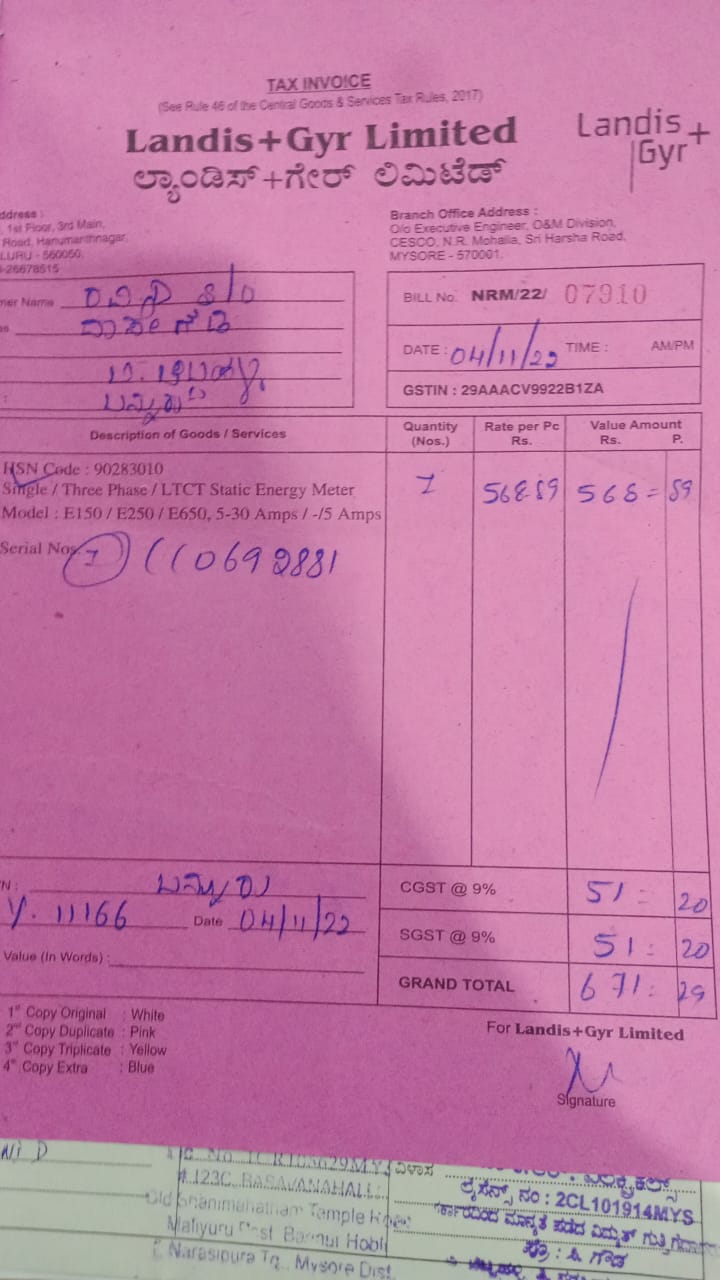 TAX INVOICE
(See Rule 46 of the Central Goods & Services Tax Rules, 2017)
Landis+Gyr Limited
ಲ್ಯಾಂಡಿಸ್+ಗೇರ್ ಲಿಮಿಟೆಡ್
Landis+
Gyr
ddress :
1st Floor, 3rd Main,
Road, Hanumanthnagar,
LURU - 560050.
-26678515
Branch Office Address :
O/o Executive Engineer, O&M Division,
CESCO, N.R. Mohalla, Sri Harsha Road,
MYSORE - 570001.
mer Name
BILL No. NRM/22/ 07910
DATE : 04/11/22 TIME : AM/PM
GSTIN : 29AAACV9922B1ZA
ಬನ್ನೂರು
Description of Goods / Services
Quantity (Nos.)
Rate per Pc Rs.
Value Amount Rs. P.
HSN Code : 90283010
Single / Three Phase / LTCT Static Energy Meter
Model : E150 / E250 / E650, 5-30 Amps / -/5 Amps
1 568.89 568=89
Serial Nos.
N : ಬನ್ನೂರು
11166 Date 04/11/22
Value (In Words) :
CGST @ 9% 51 = 20
SGST @ 9% 51 = 20
GRAND TOTAL 671 = 29
1st Copy Original : White
2nd Copy Duplicate : Pink
3rd Copy Triplicate : Yellow
4th Copy Extra : Blue
For Landis+Gyr Limited
Signature
ವಿಳಾಸ
# 123C, BASAVANAHALLI
Old Shanimahatham Temple
Maliyuru Post, Bannur Hobli
T. Narasipura Tq., Mysore Dist.
ಲೈಸೆನ್ಸ್ ನಂ : 2CL101914MYS